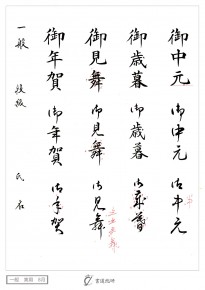 御中元 御中元 御中元
御歳暮 御歳暮 御歳暮
御見舞 御見舞 御見舞
御年賀 御年賀 御年賀
一般 段級 氏名
一般